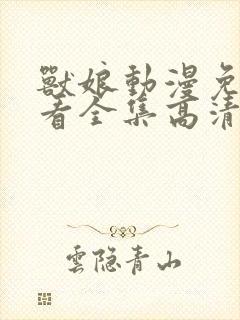 獸娘動漫免
看全集高清
雲隐青山